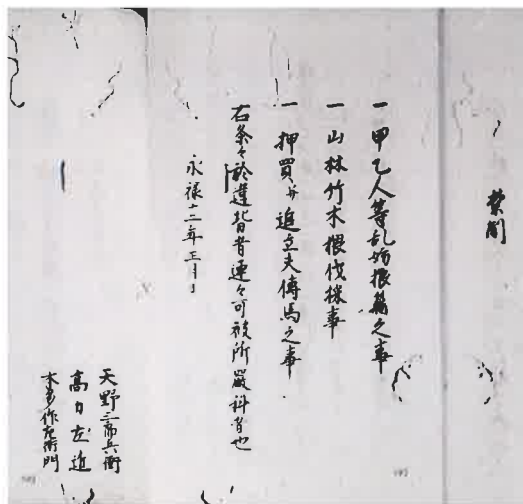 禁制
一 甲乙人等乱妨狼藉之事
一 山林竹木猥伐採事
一 押買并追立夫傳馬之事
右条々於違背者速々可被所嚴科者也
永禄十二年正月日
天野三郎兵衛
高力左近
本多作左衛門